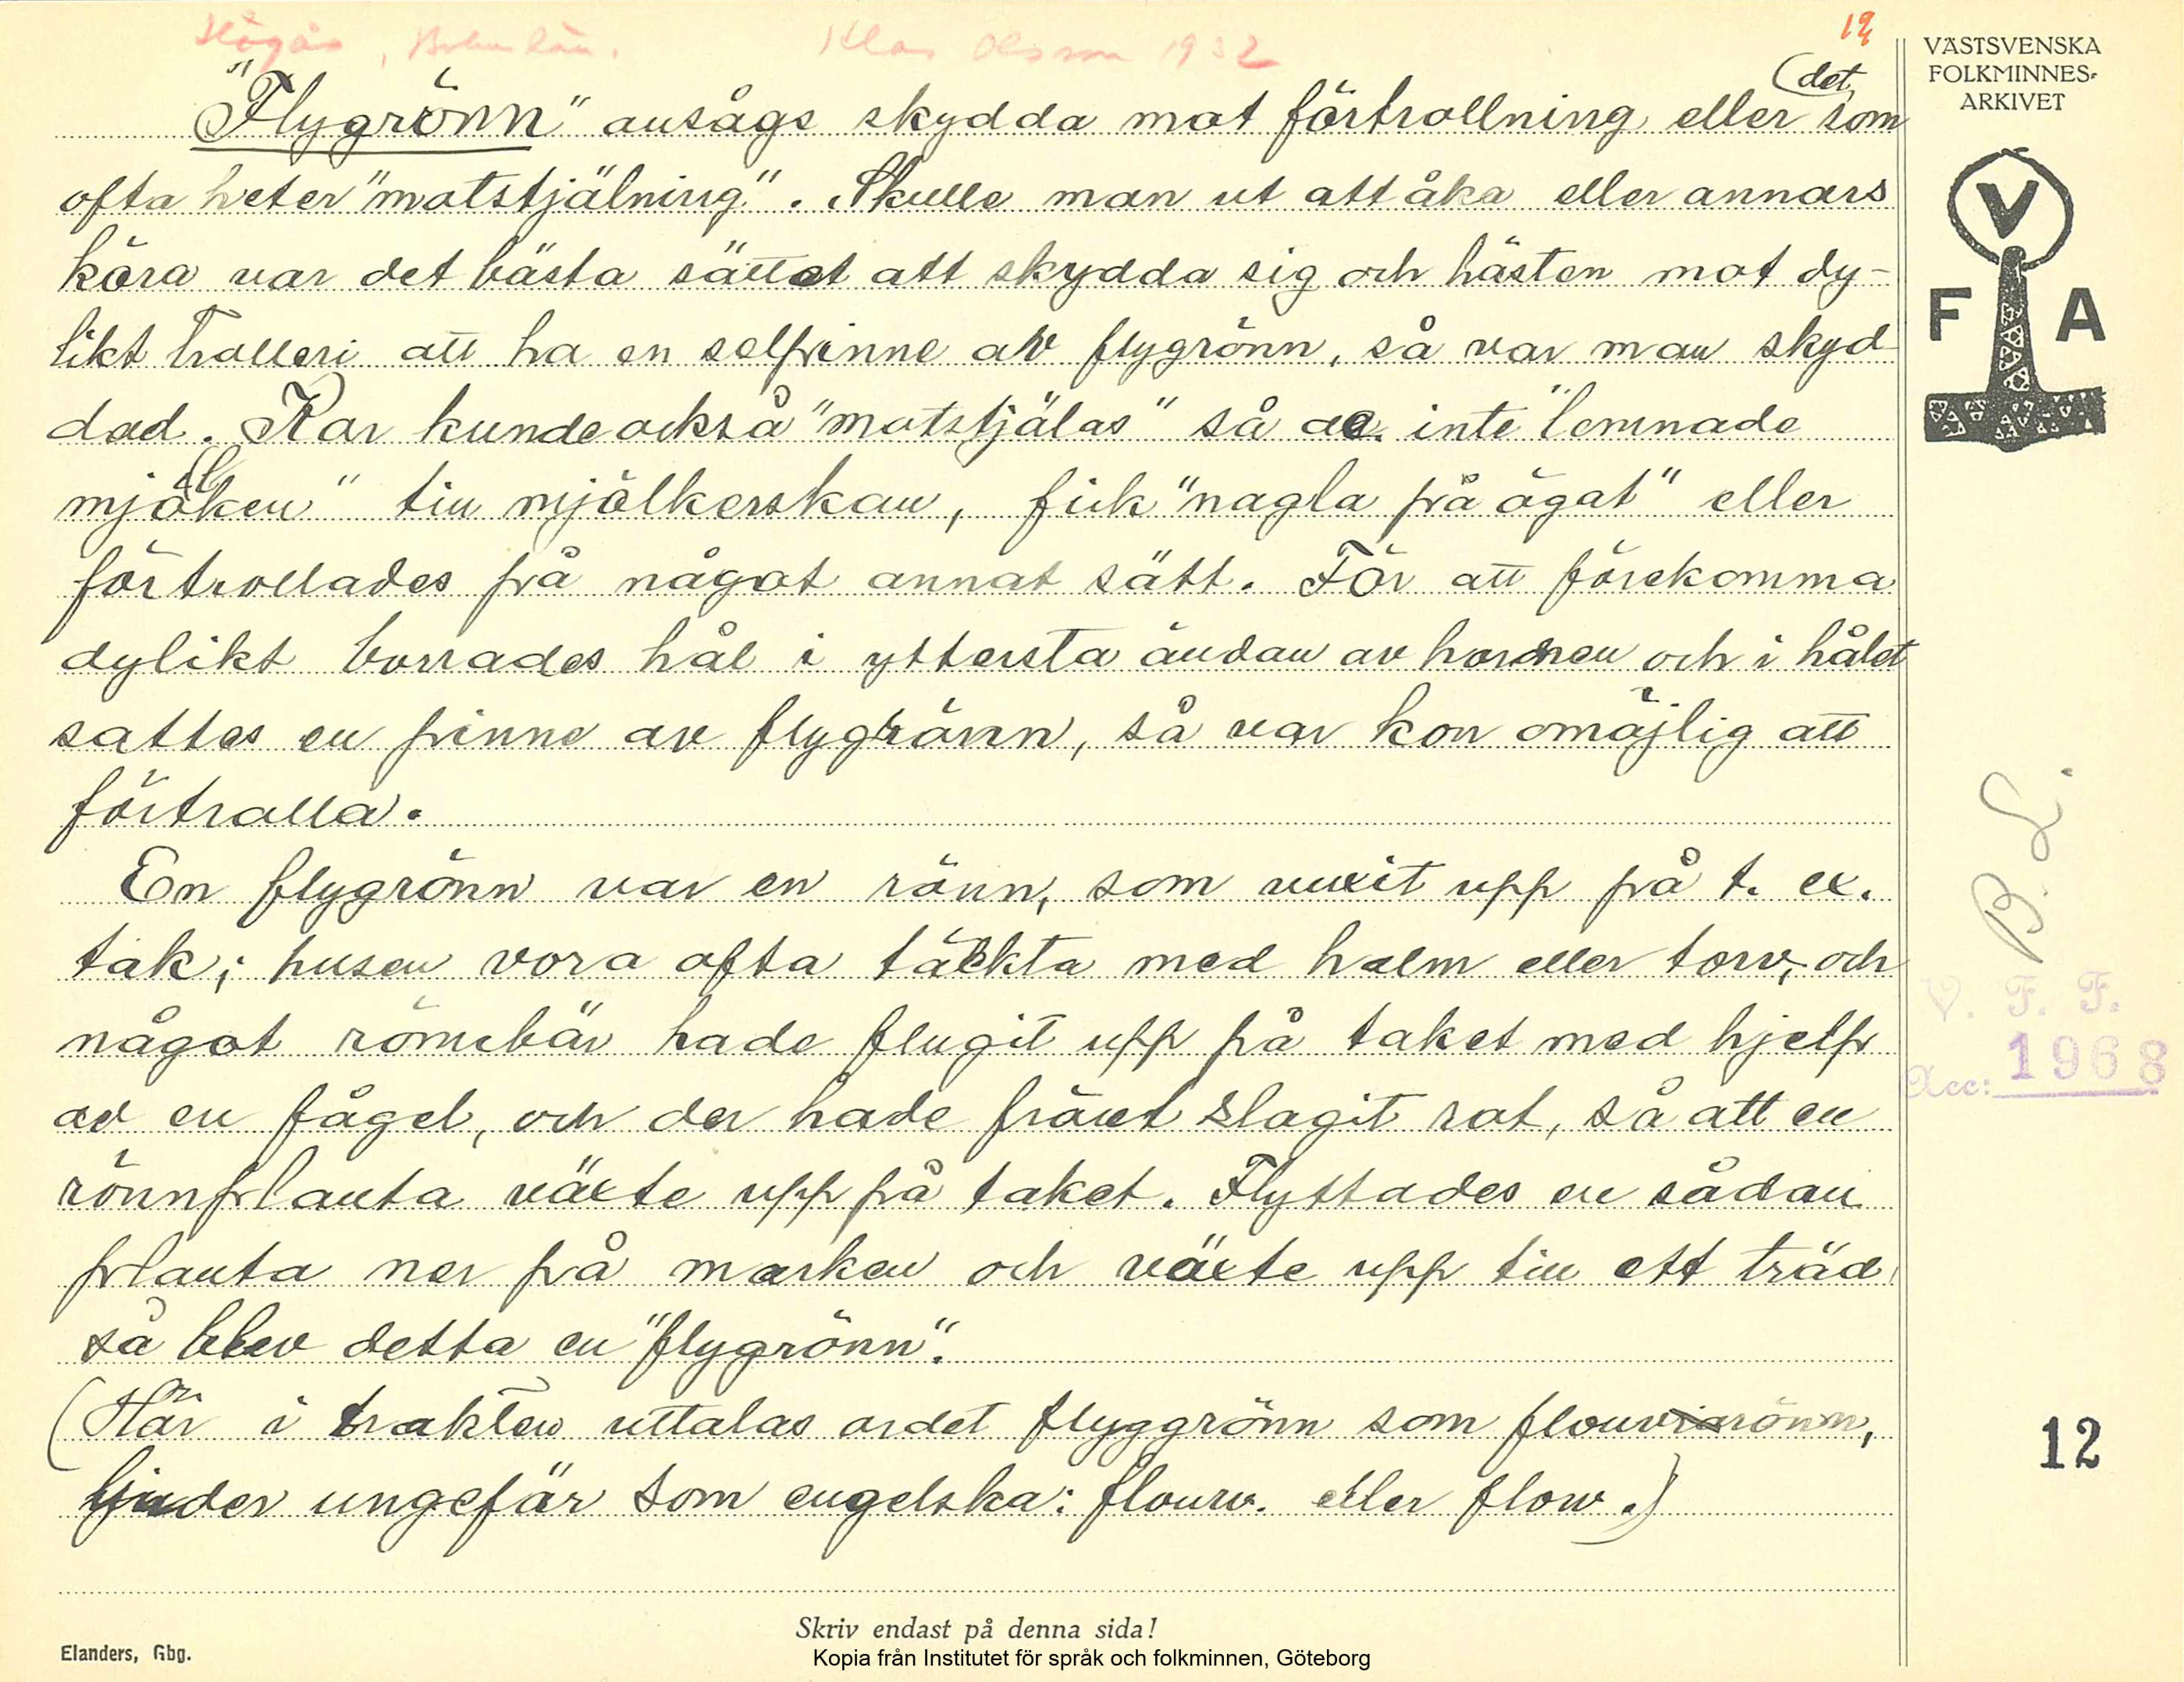 Högås, Bohuslän. Klas Olsson 1932
12
VÄSTSVENSKA
FOLKMINNES-
ARKIVET
V
F A
"Flygrönn" ansågs skydda mot förtrollning eller det som
ofta heter "motstjälning". Skulle man ut att åka eller annars
köra var det bästa sättet att skydda sig och hästen mot dy-
likt trolleri att ha en selpinne av flygrönn, så var man skyd
dad. Kor kunde också "motstjälas" så de inte "lemnade
mjölken" till mjölkerskan, fick "nagla på ögat" eller
förtrollades på något annat sätt. För att förekomma
dylikt borrades hål i yttersta ändan av hornen och i hålet
sattes en pinne av flygrönn, så var kon omöjlig att
förtrolla.
En flygrönn var en rönn, som vuxit upp på t. ex.
tak; husen voro ofta täckta med halm eller torv, och
något rönnbär hade flugit upp på taket med hjelp
av en fågel, och der hade fröet slagit rot, så att en
rönnplanta växte upp på taket. Flyttades en sådan
planta ner på marken och växte upp till ett träd,
så blev detta en "flygrönn".
(Här i trakten uttalas ordet flyggrönn som flouvrönn,
ljuder ungefär som engelska: flouw. eller flow.)
B. L.
V. F. F.
Acc: 1968
12
Skriv endast på denna sida!
Elanders, Gbg.
Kopia från Institutet för språk och folkminnen, Göteborg